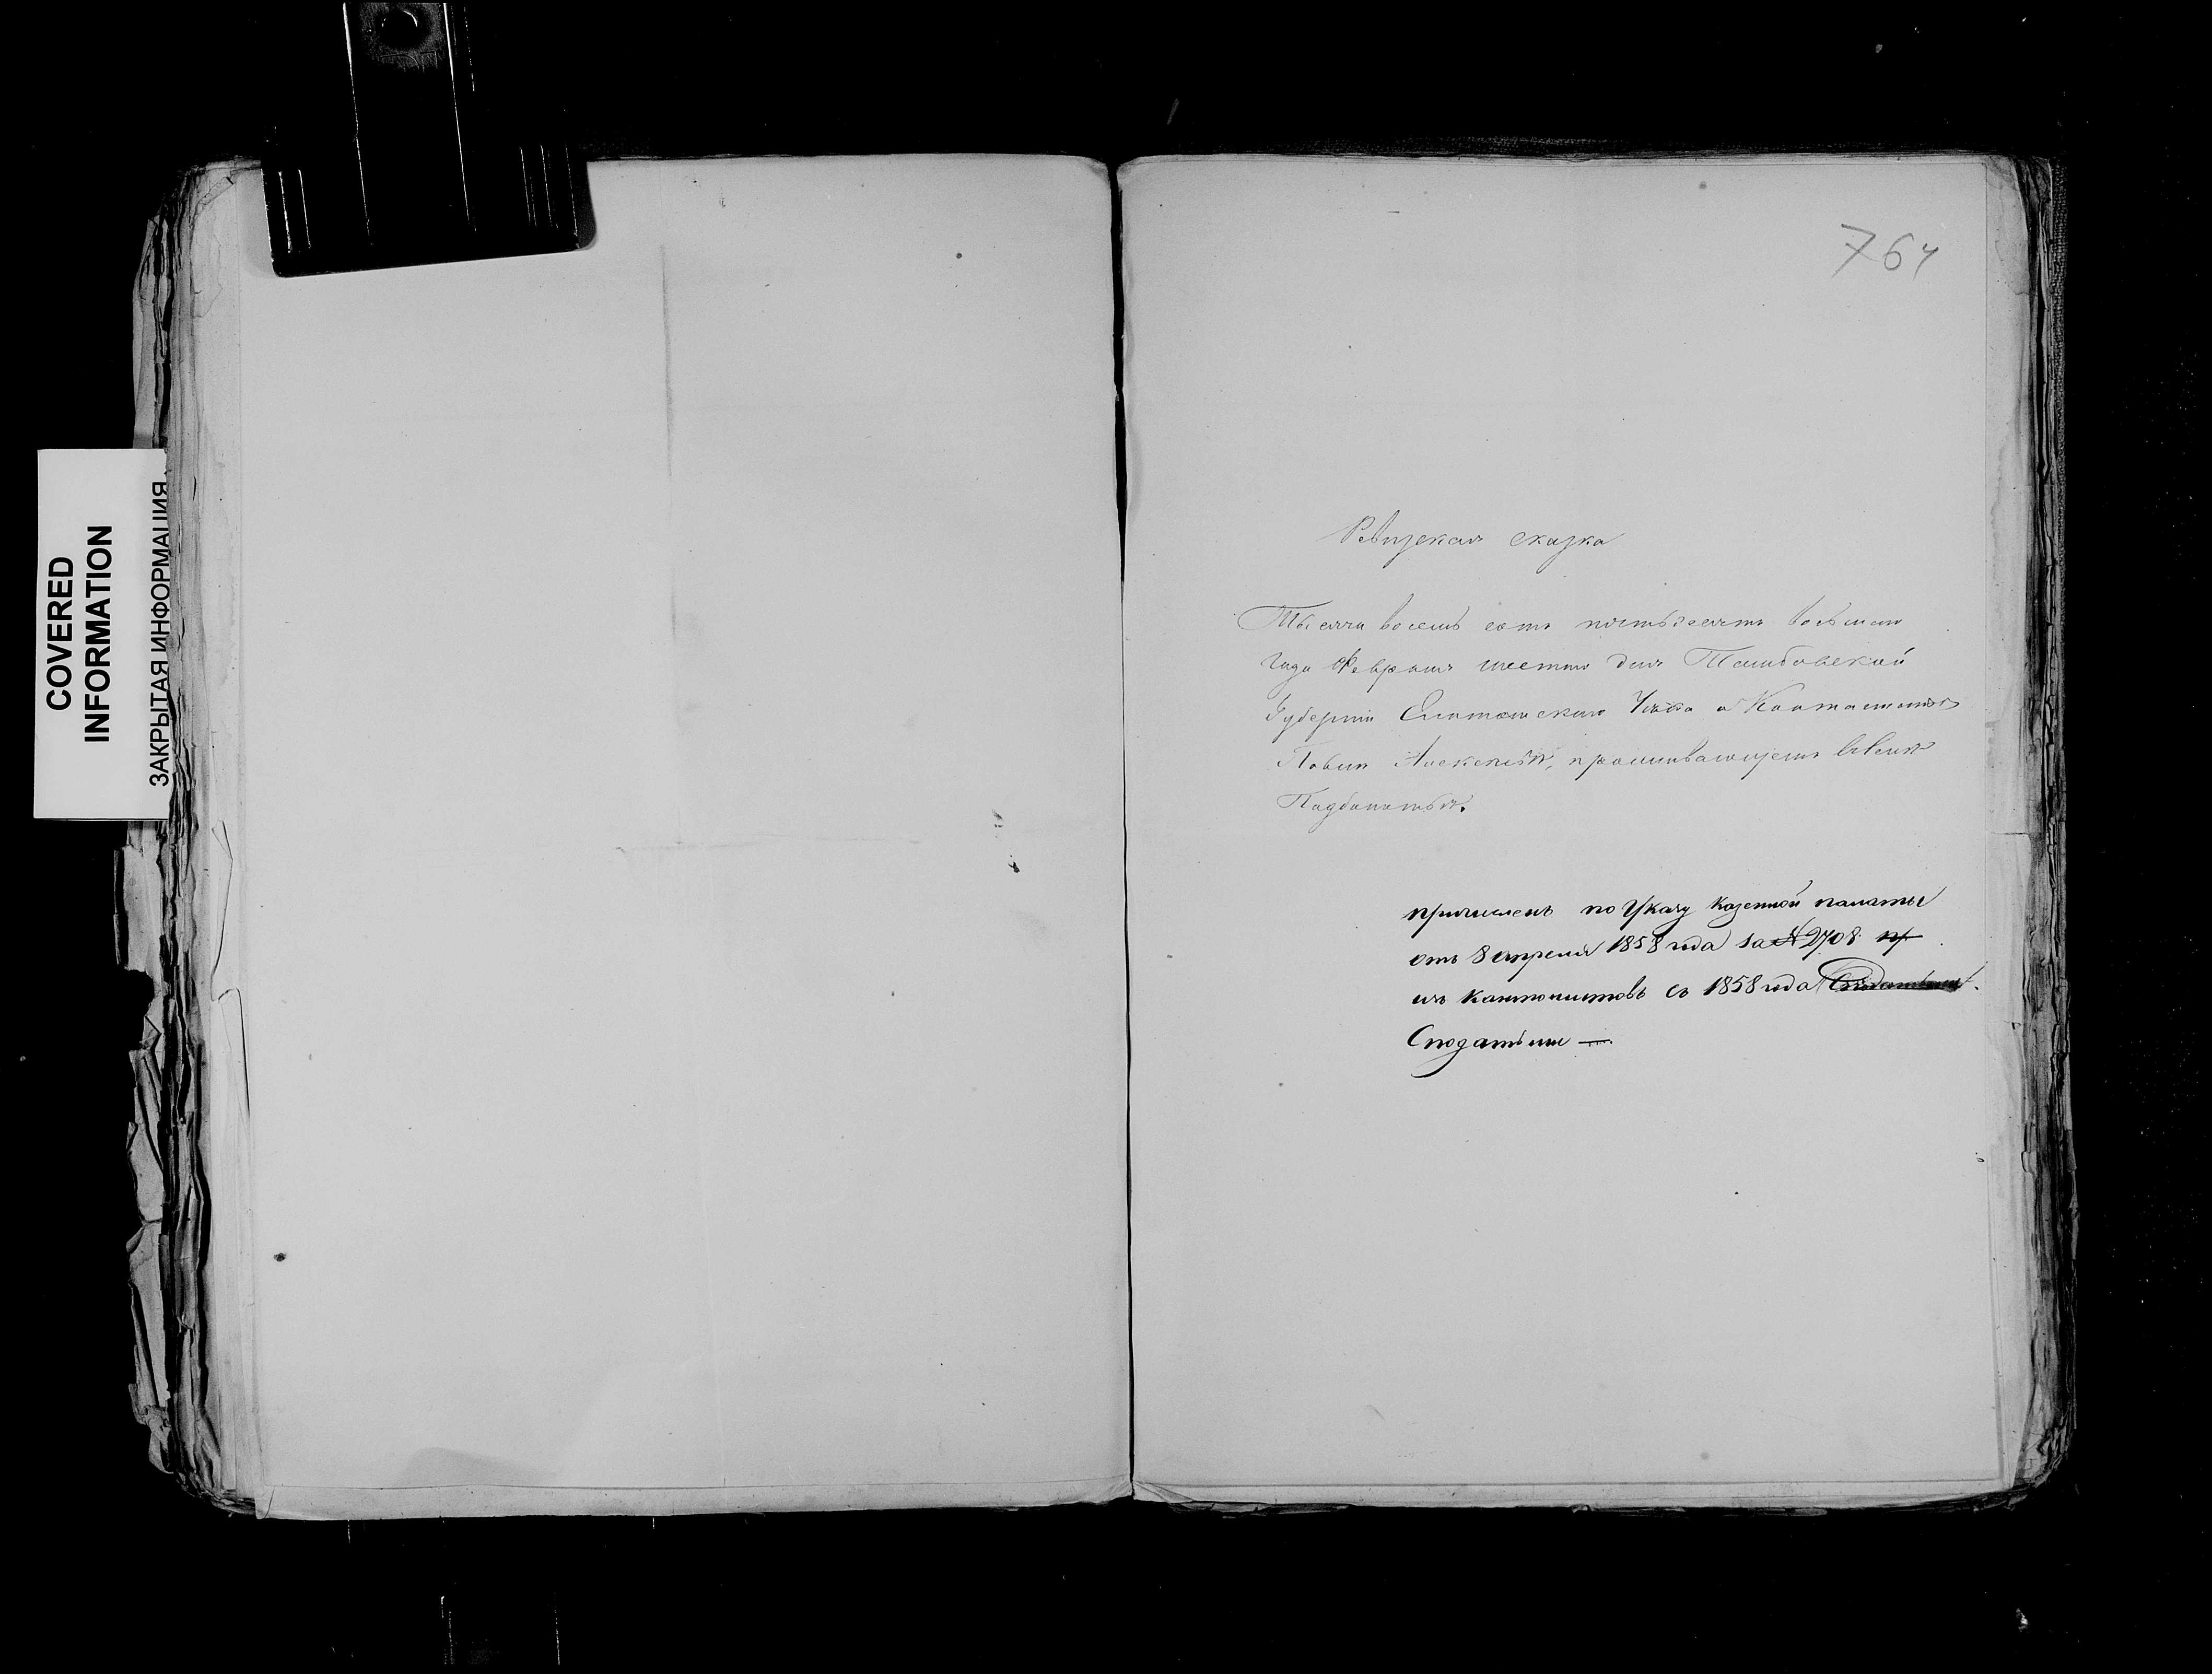 COVERED
INFORMATION
ЗАКРЫТАЯ ИНФОРМАЦИЯ
764
Ревизская сказка
Тысяча восемь сотъ пятьдесятъ восьмаго
года Февраля шестаго дня Тамбовской
Губернии Елатомскаго Уезда о Кантонисте
Павле Алексееве, проживающемъ в селе
Подболотье.
причисленъ по Указу Казенной палаты
отъ 8 апреля 1858 года за № 2708 пр
изъ кантонистовъ съ 1858 года Сподатьми
Сподатьми —